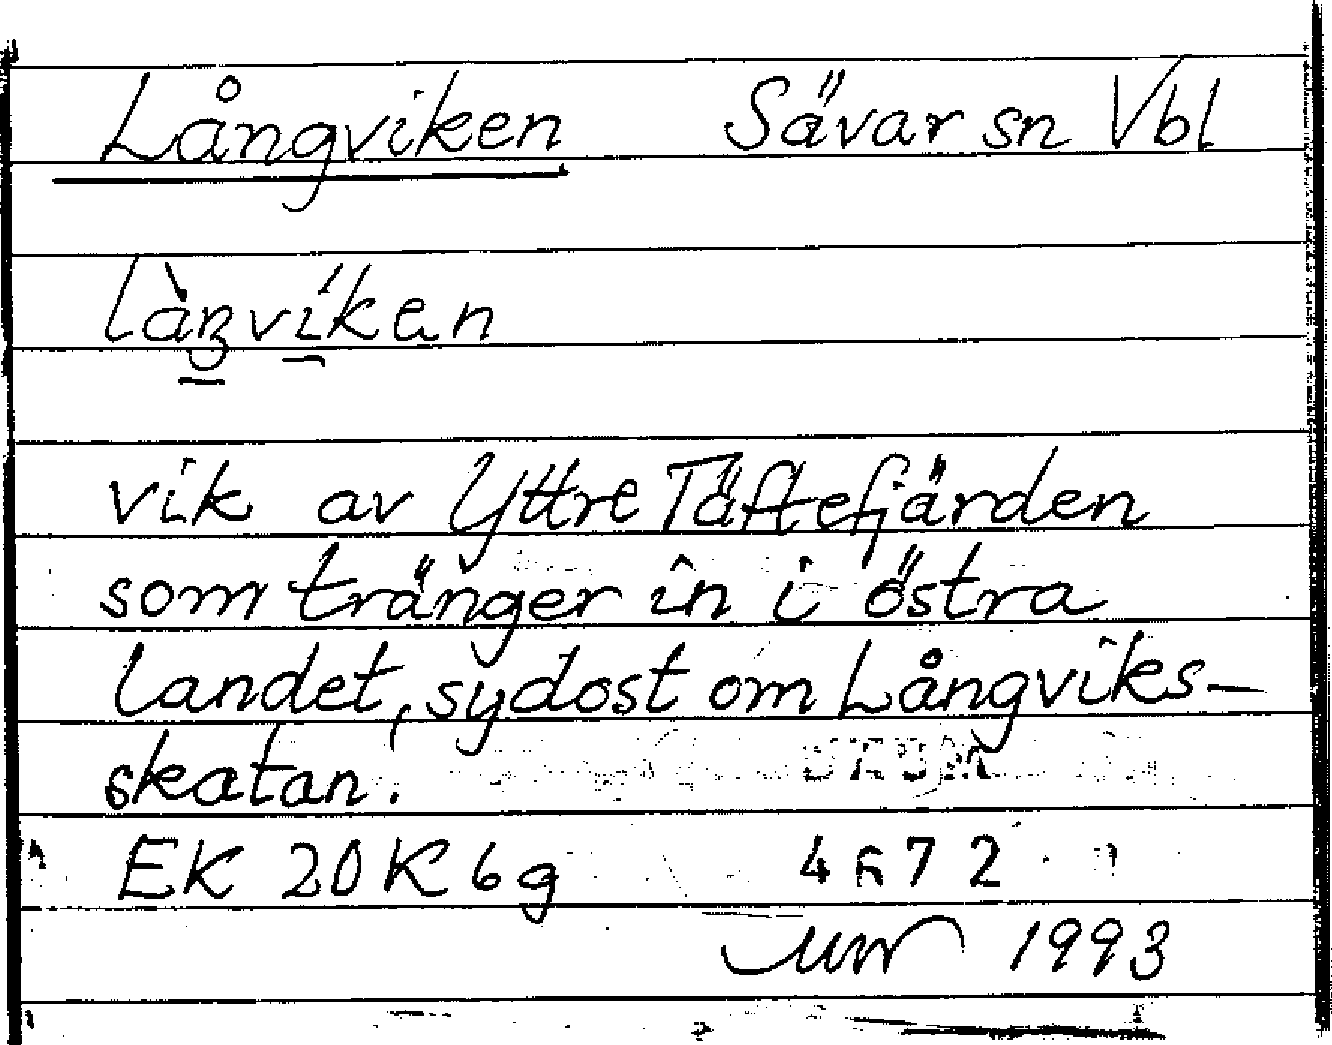 Långviken Sävar sn Vbl
vik av Yttre Täftefjärden
som tränger in i östra
landet, sydost om Långviks-
skatan.
EK 20K6g
1993